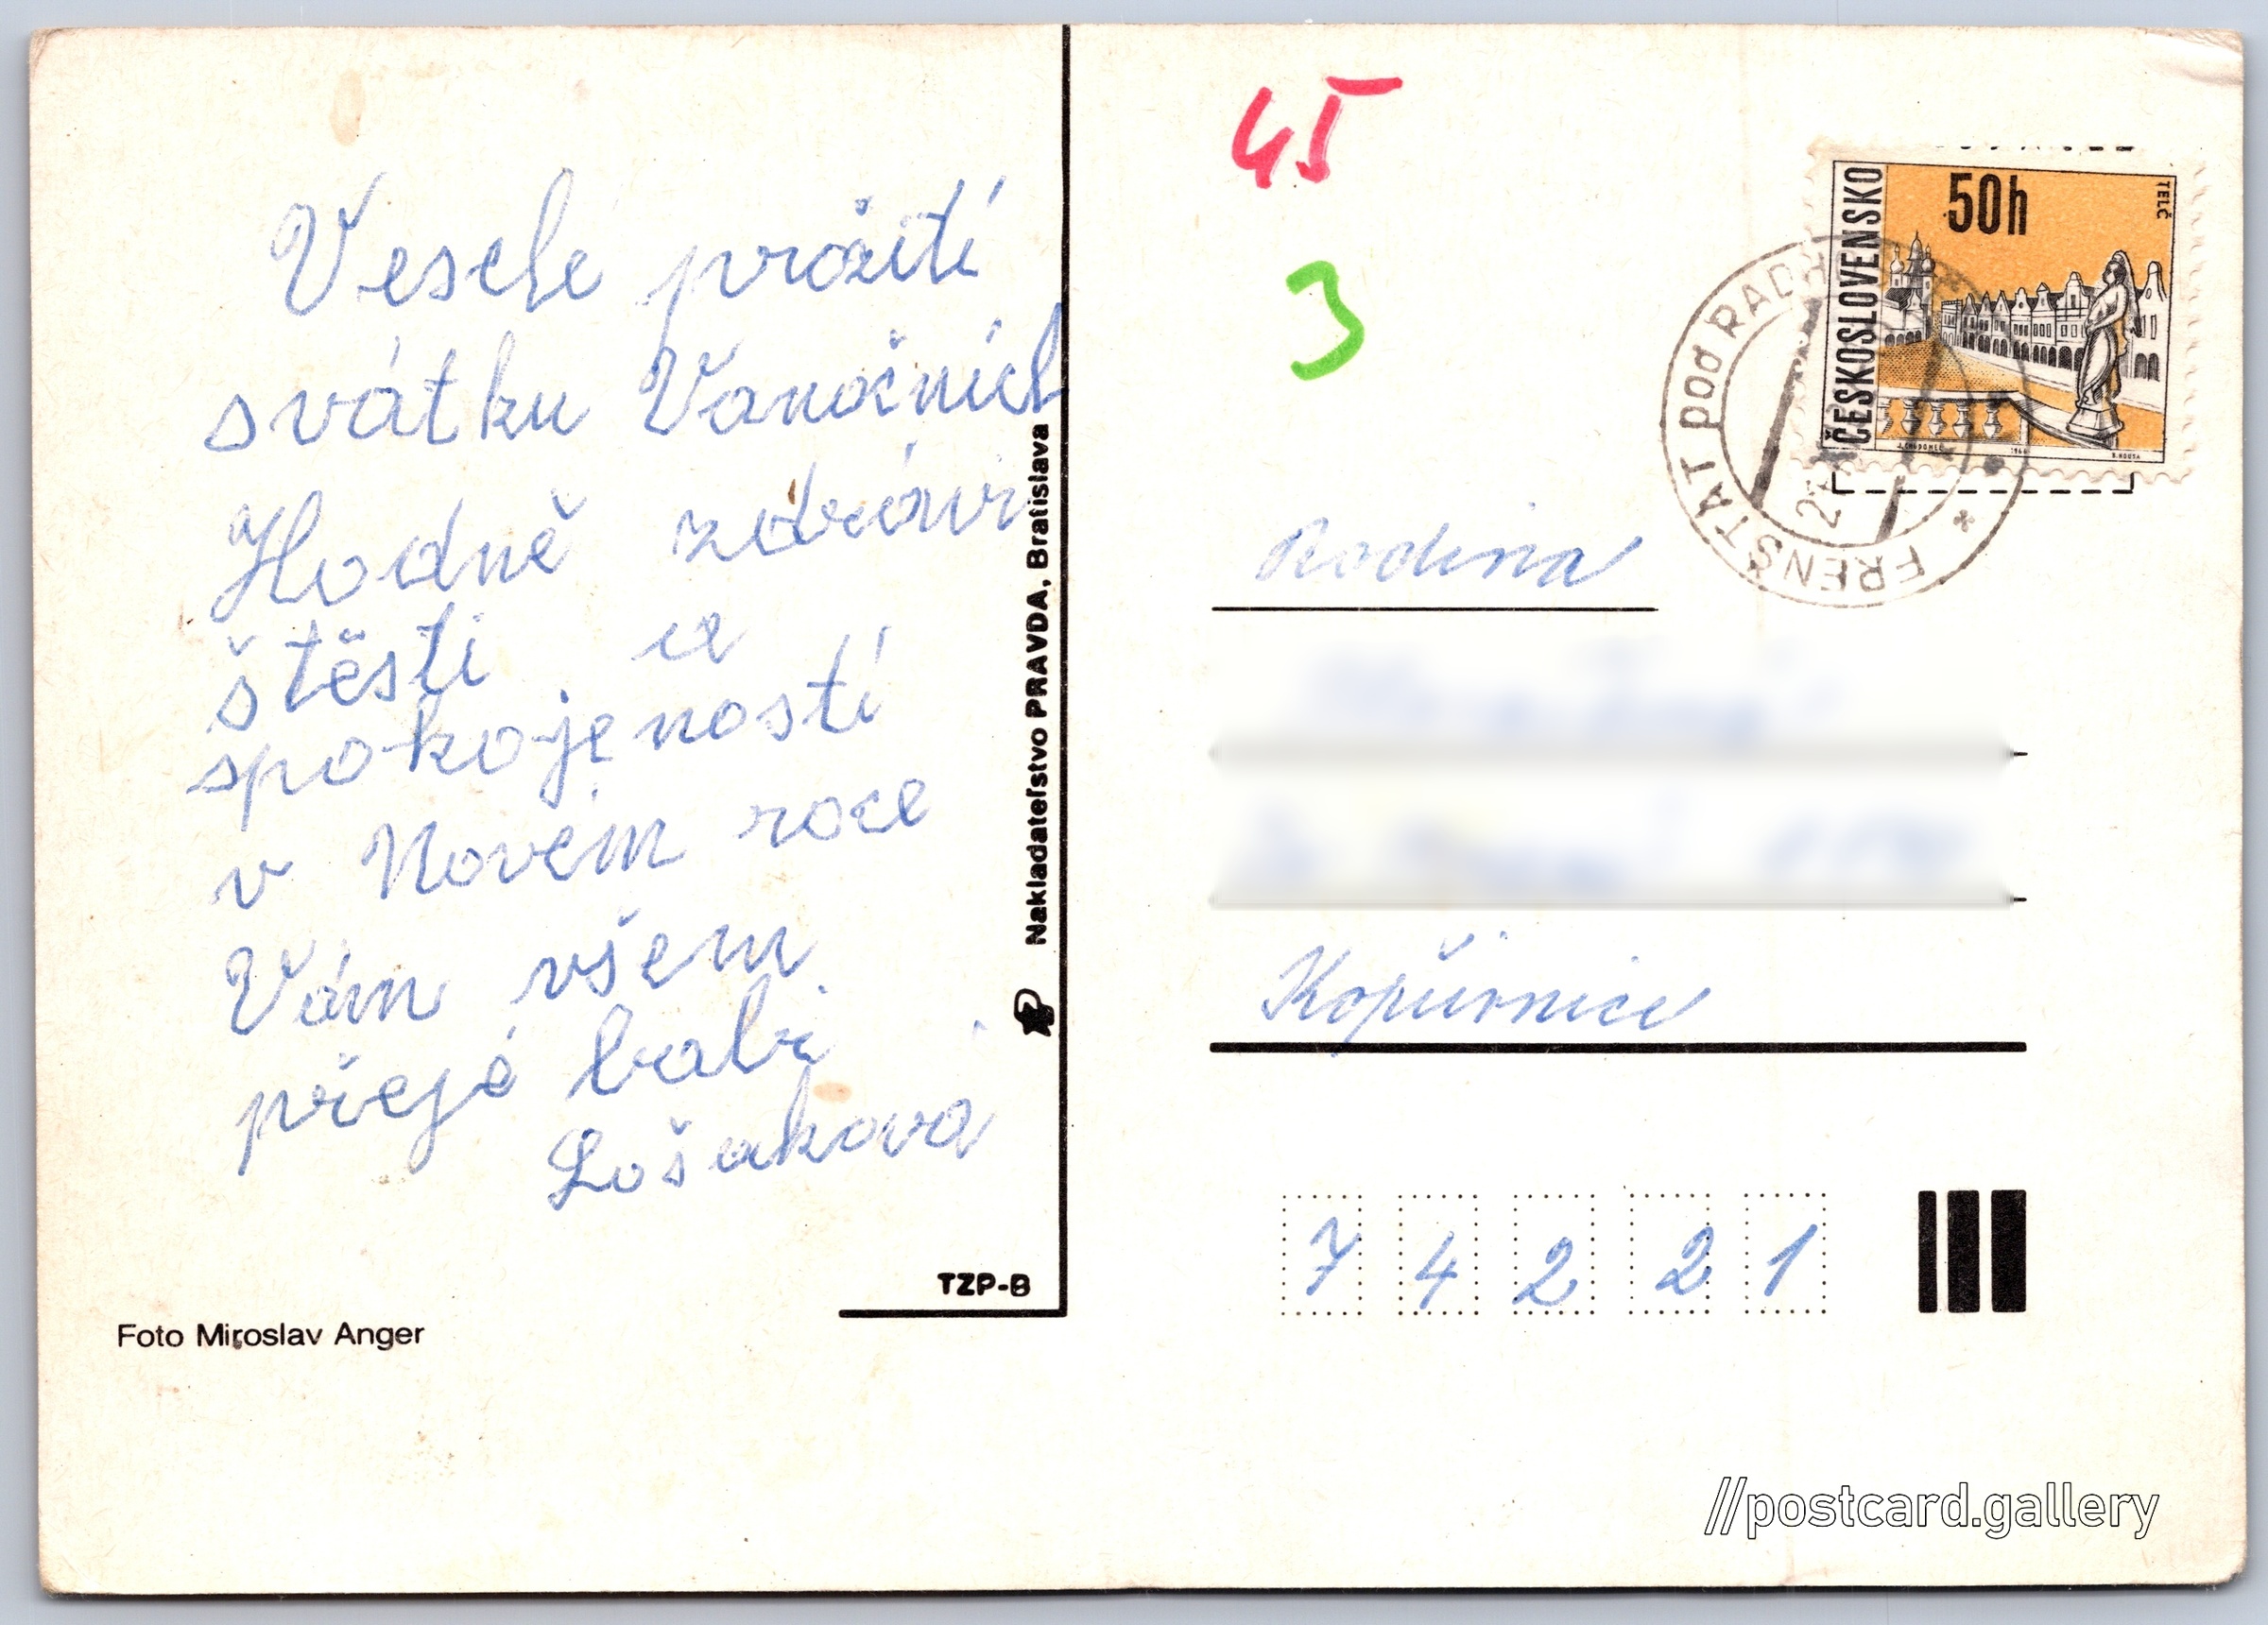 Veselé prožití
svátku Vanočních
Hodně zdraví
štěstí a
spokojeností
v Novém roce
Vám všem
přejé babi
Lošakova
Foto Miroslav Anger
TZP-B
Nakladateľstvo PRAVDA, Bratislava
45
3
ČESKOSLOVENSKO
50h
TELČ
FRENŠTÁT pod RADH
Rodina
Kopřivnice
7 4 2 2 1
//postcard.gallery